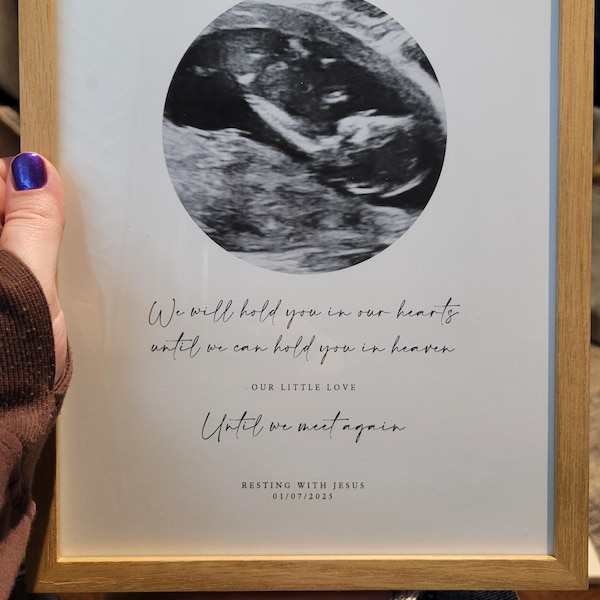 We will hold you in our hearts
until we can hold you in heaven
OUR LITTLE LOVE
Until we meet again
RESTING WITH JESUS
01/07/2025